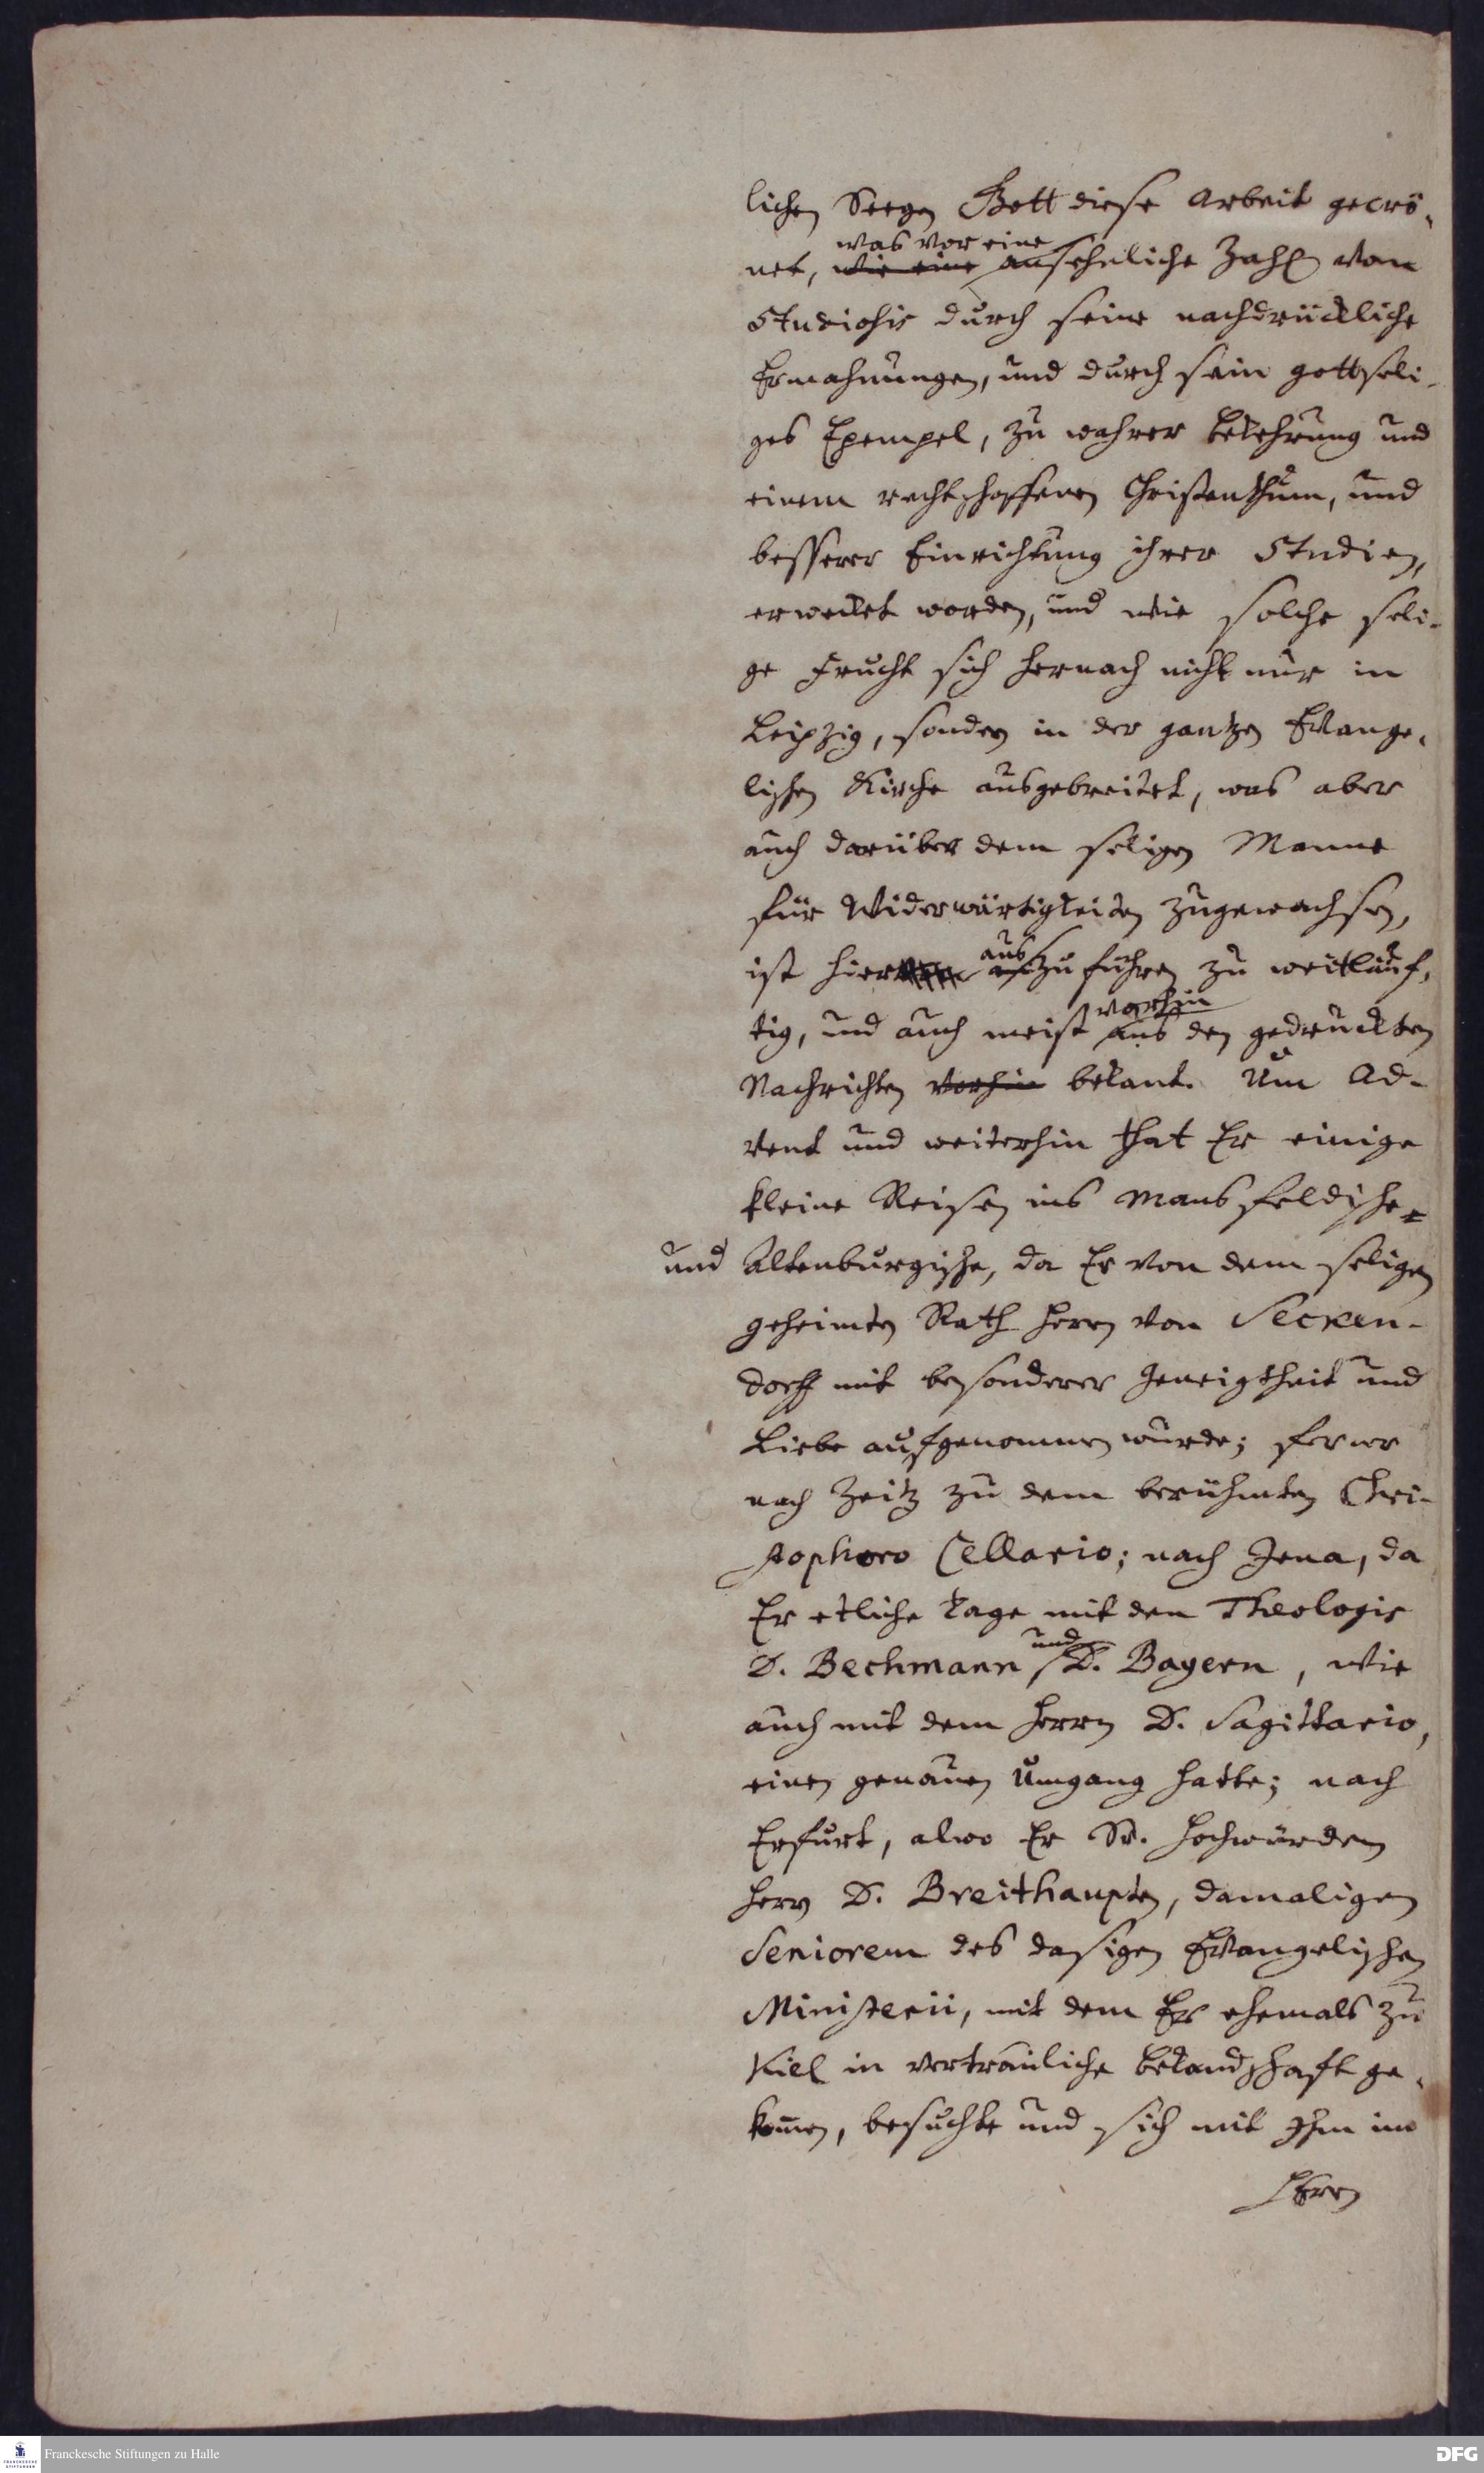 lichen Seegen Gott diese Arbeit gecrö-
was vor eine
net, wie eine ansehnliche Zahl von
Studiosis durch seine nachdrückliche
Ermahnungen, und durch sein gottseli-
ges Exempel, zu wahrer Bekehrung und
einem rechtschaffenen Christenthum, und
besserer Einrichtung ihrer Studien,
erwecket worden, und wie solche seli-
ge Frucht sich hernach nicht nur in
Leipzig, sondern in der gantzen Evange-
lischen Kirche ausgebreitet, was aber
auch darüber dem seligen Manne
für Widerwärtigkeiten zugewachsen,
aus
ist hier zu führen zu weitläuf-
vorhin
tig, und auch meist aus den gedruckten
Nachrichten vorhin bekant. Um Ad-
vent und weiterhin that Er einige
kleine Reisen ins Mansfeldische
und Altenburgische, da Er von dem seligen
geheimten Rath Herrn von Secken-
dorff mit besonderer Geneigtheit und
Liebe aufgenommen wurde; ferner
nach Zeitz zu dem berühmten Chri-
stophoro Cellario; nach Jena, da
Er etliche Tage mit den Theologis
und
D. Bechmann D. Bayern, wie
auch mit dem Herrn D. Sagittario,
einen genauen Umgang hatte; nach
Erfurt, alwo Er Sr. Hochwürden
Herrn D. Breithaupten, damaligen
Seniorem des dasigen Evangelischen
Ministerii, mit dem Er ehemals zu
Kiel in vertrauliche Bekandschaft ge-
kom̅en, besuchte und sich mit Ihm im
HErrn
Franckesche Stiftungen zu Halle
FRANCKESCHE STIFTUNGEN
DFG